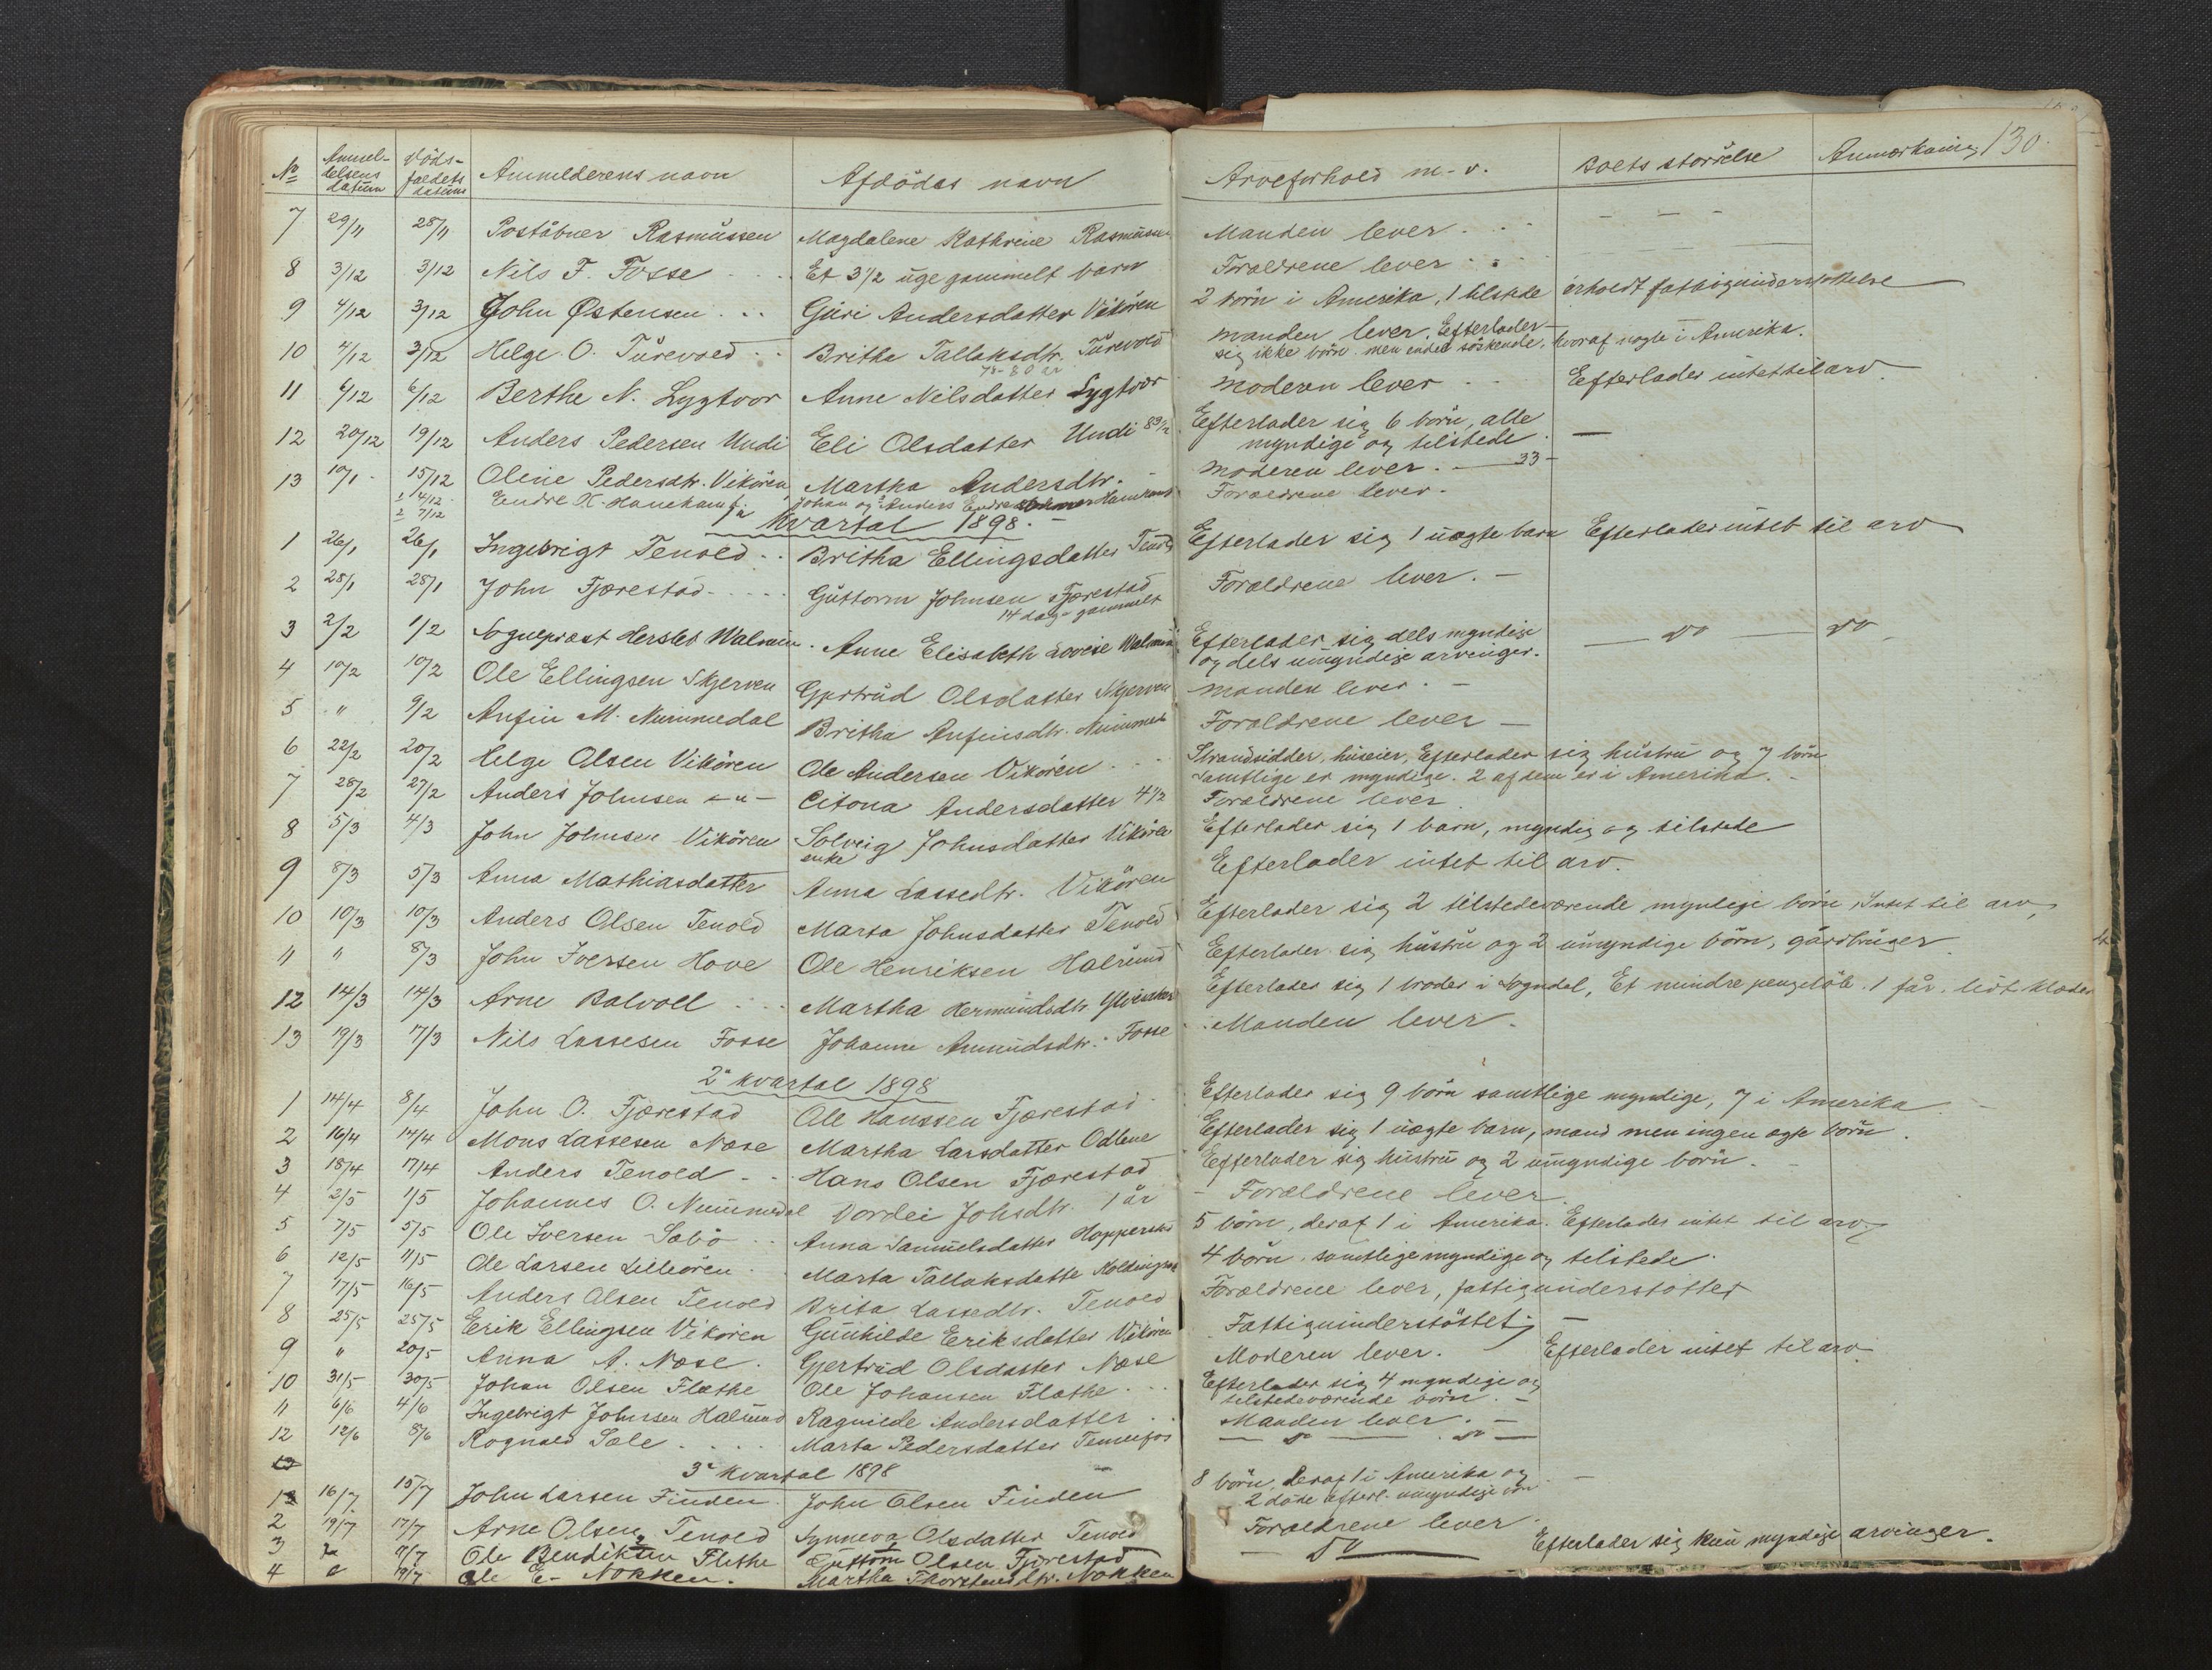 130.
№ Anmel-delsens datum Döds-faldets datum Anmelderens navn Afdödes navn Arveforhold m. v. Boets störrelse Anmærkning
7 29/11 28/11 Poståbner Rasmussen Magdalene Kathrine Manden lever. - - -
8 3/12 3/12 Nils F. Fosse Et 3 1/2 uge gammelt barn Forældrene lever
9 4/12 3/12 John Østensen Guri Andersdatter Vikören 2 börn i Amerika, 1 tilstede erholdt fattigunderstöttelse
10 4/12 3/12 Helge O. Turevold Britha Tallaksdtr. Turevold manden lever. Efterlader
sig ikke börn men endel söskende, hvoraf nogle i Amerika.
11 6/12 6/12 Berthe N. Lygtvor Anne Nilsdatter Lygtvor moderen lever Efterlader intet til arv.
12 20/12 19/12 Anders Pedersen Undi Eli Olsdatter Undi Efterlader sig 6 börn, alle
myndige og tilstede. —
13 10/1 15/12 Oline Pedersdtr. Vikören Martha Andersdtr. moderen lever. — 33 -
1 4/12 2 7/12 Endre H. Hanekamb Johan og Anders Forældrene lever.
1ste Kvartal 1898.
1 26/1 26/1 Ingebrigt Tenold Britha Ellingsdatter Efterlader sig 1 uægte barn Efterlader intet til arv
2 28/1 28/1 John Fjærestad Guttorm Johnsen Fjærestad Forældrene lever. -
14 dage gammelt
3 2/2 1/2 Sogneprest Hersleb Walnum Anne Elisabeth Lovise Efterlader sig dels myndige — do — do
og dels umyndige arvinger.
4 10/2 10/2 Ole Ellingsen Skjerven Gjertrud Olsdatter Skjerven manden lever. -
5 " 9/2 Anfin M. Nummedal Britha Anfinsdtr. Forældrene lever -
6 22/2 20/2 Helge Olsen Vikören Ole Andersen Vikören Strandsidder, huseier, Efterlader sig hustru og 7 börn
samtlige er myndige. 2 af dem er i Amerika. -
7 28/2 27/2 Anders Johnsen - " - Andersdatter 4 1/2 Forældrene lever.
8 5/3 4/3 John Johnsen Vikören Solveig Johnsdatter Vikören Efterlader sig 1 barn, myndig og tilstede
enke
9 8/3 5/3 Anna Mathiasdatter Anna Lassedtr. Vikören Efterlader intet til arv.
10 10/3 10/3 Anders Olsen Tenold Marta Johnsdatter Tenold Efterlader sig 2 tilstedeværende myndige börn, Intet til arv
11 " 8/3 John Iversen Hove Ole Henriksen Halsund Efterlader sig hustru og 2 umyndige börn, gårdbruger
12 14/3 14/3 Arne Balvoll Martha Hermundsdtr. Efterlader sig 1 broder i Sogndal, Et mindre pengelöb. 1 får. lidt klæder
13 19/3 17/3 Nils Lassesen Fosse Johanne Amundsdtr. Fosse Manden lever.
2det kvartal 1898
1 14/4 8/4 John O. Fjærestad Ole Hanssen Fjærestad Efterlader sig 9 börn samtlige myndige, 7 i Amerika. -
2 16/4 14/4 Mons Lassesen Næse Martha Larsdatter Odlene Efterlader sig 1 uægte barn, mand men ingen ægte börn.
3 18/4 17/4 Anders Tenold Hans Olsen Fjærestad Efterlader sig hustru og 2 umyndige börn. -
4 2/5 1/5 Johannes O. Nummedal Vordei Johsdtr. 1 år - Forældrene lever.
5 7/5 5/5 Ole Iversen Sæbö Anna Samuelsdatter 5 börn, deraf 1 i Amerika. Efterlader intet til arv.
6 12/5 11/5 Ole Larsen Lilleören Marta Tallaksdatte 4 börn samtlige myndige og tilstede.
7 17/5 16/5 Anders Olsen Tenold Brita Lassedtr. Tenold Forældrene lever, fattigunderstöttet
8 25/5 25/5 Erik Ellingsen Vikören Gunhilde Eriksdatter Vikören Fattigunderstöttet. —
9 " 20/5 Anna A. Næse. Gjertrud Olsdatter Næse Moderen lever. Efterlader intet til arv.
10 31/5 30/5 Johan Olsen Flæthe Ole Johansen Flathe Efterlader sig 4 myndige og
tilstedeværende börn. -
11 6/6 4/6 Ingebrigt Johnsen Halsund Ragnilde Andersdatter Manden lever. -
12 12/6 8/6 Rognald Sæle Marta Pedersdatter — do — do —
3die kvartal 1898
1 16/7 15/7 John Larsen Finden John Olsen Finden 8 börn, deraf 1 i Amerika og -
2 döde efterl. umyndige
2 19/7 17/7 Arne Olsen Tenold Synneva Olsdatter Tenold Forældrene lever
3 Ole Bendiktsen Flethe Guttorm Olsen Fjærestad do
4 Ole E. Nokken. Martha Thorstensdtr. Nokken Efterlader sig kun myndige arvinger.